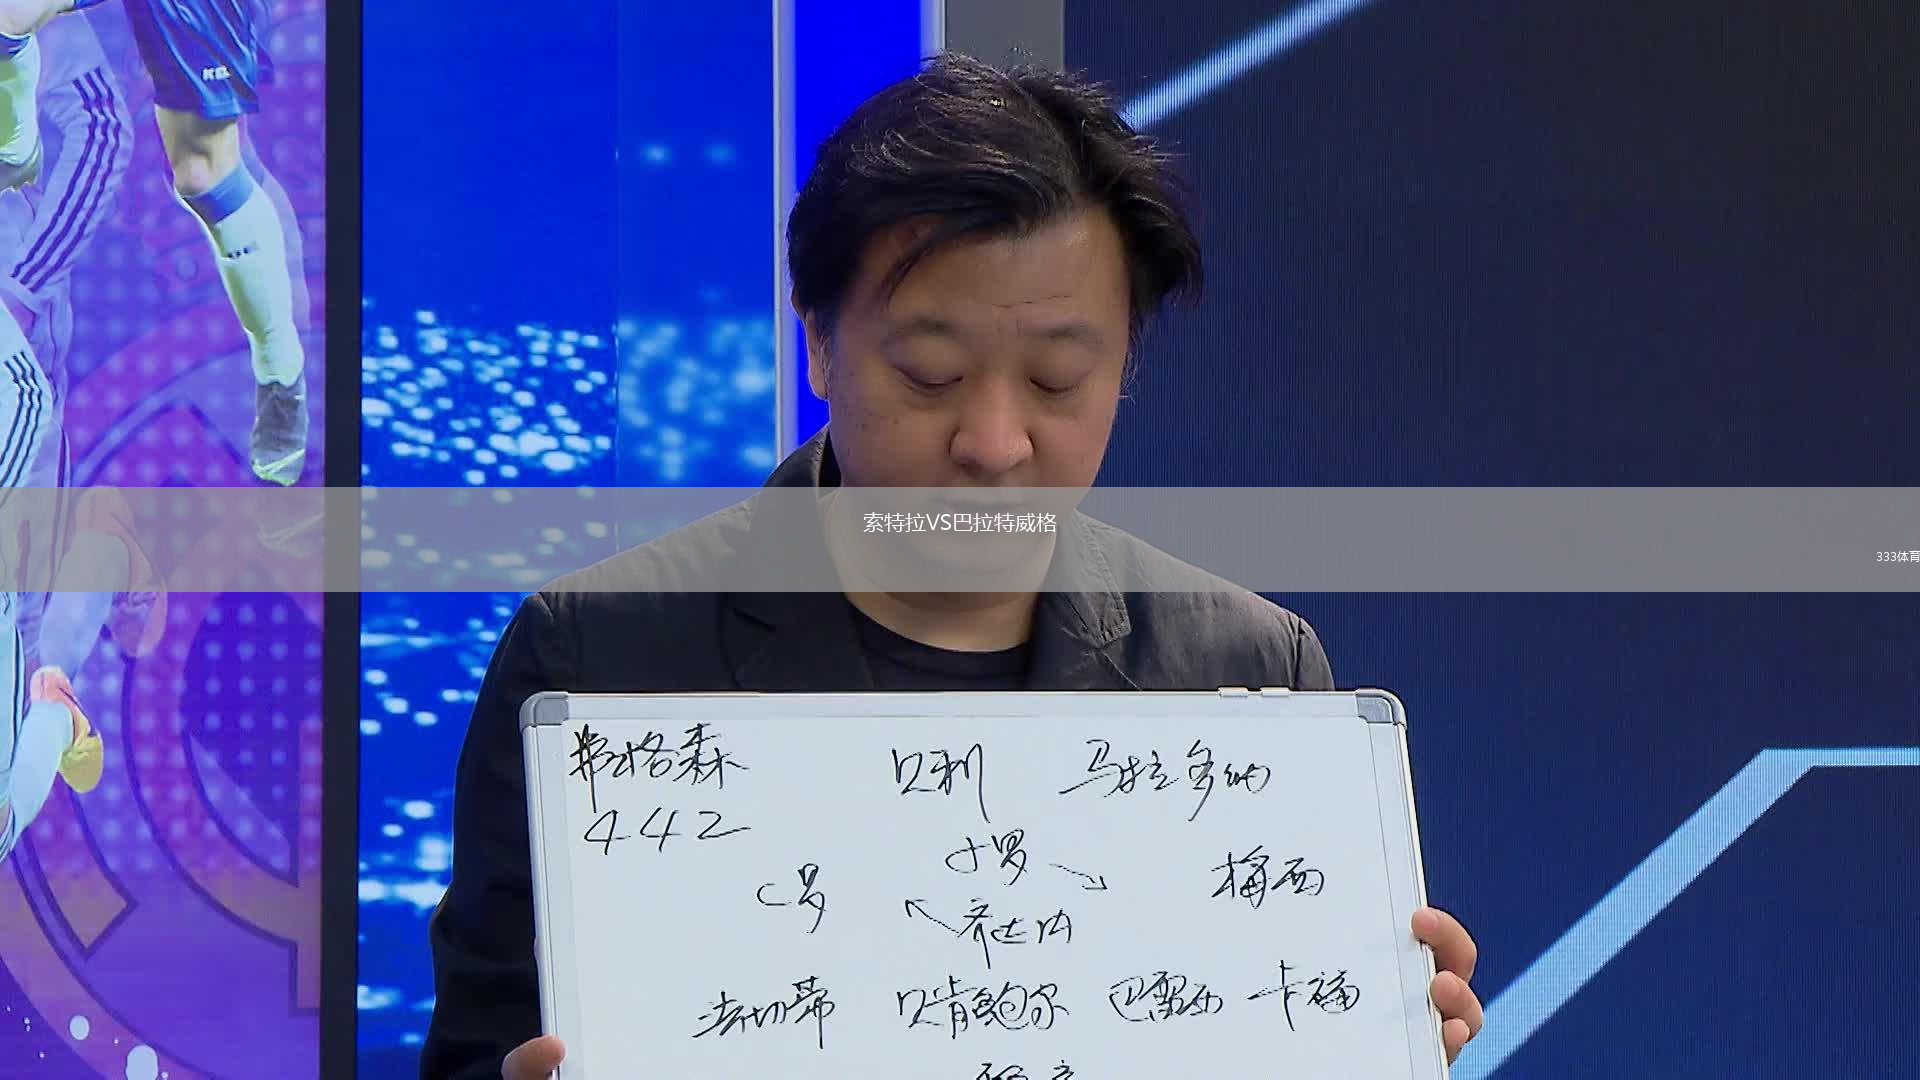 索特拉VS巴拉特威格
333体育
弗格森 贝利 马拉多纳
442
小罗
C罗 梅西
齐达内
法切蒂 贝肯鲍尔 巴雷西 卡福